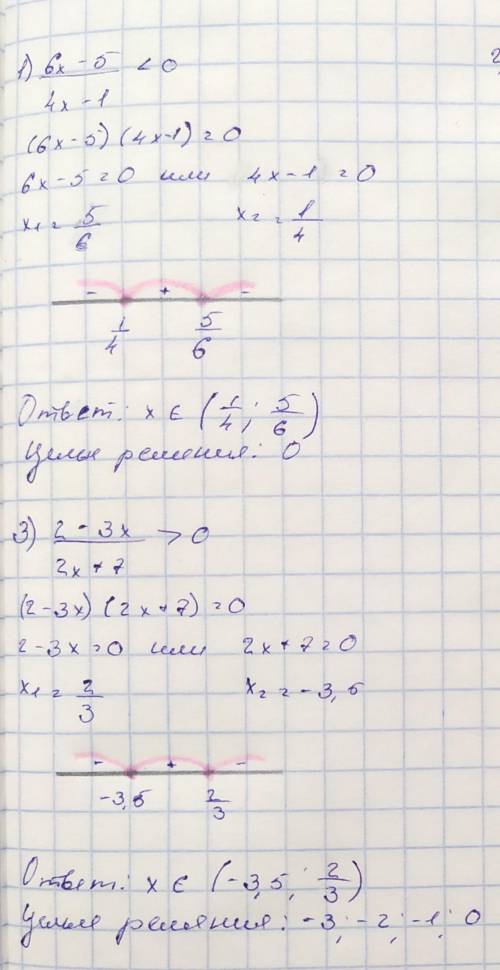 1) (6x - 5)/(4x - 1) < 0
(6x - 5) (4x - 1) = 0
6x - 5 = 0 или 4x - 1 = 0
x₁ = 5/6 x₂ = 1/4
- + -
1/4 5/6
Ответ: x ∈ (1/4; 5/6)
Целые решения: 0
3) (2 - 3x)/(2x + 7) > 0
(2 - 3x) (2x + 7) = 0
2 - 3x = 0 или 2x + 7 = 0
x₁ = 2/3 x₂ = -3,5
- + -
-3,5 2/3
Ответ: x ∈ (-3,5; 2/3)
Целые решения: -3; -2; -1; 0